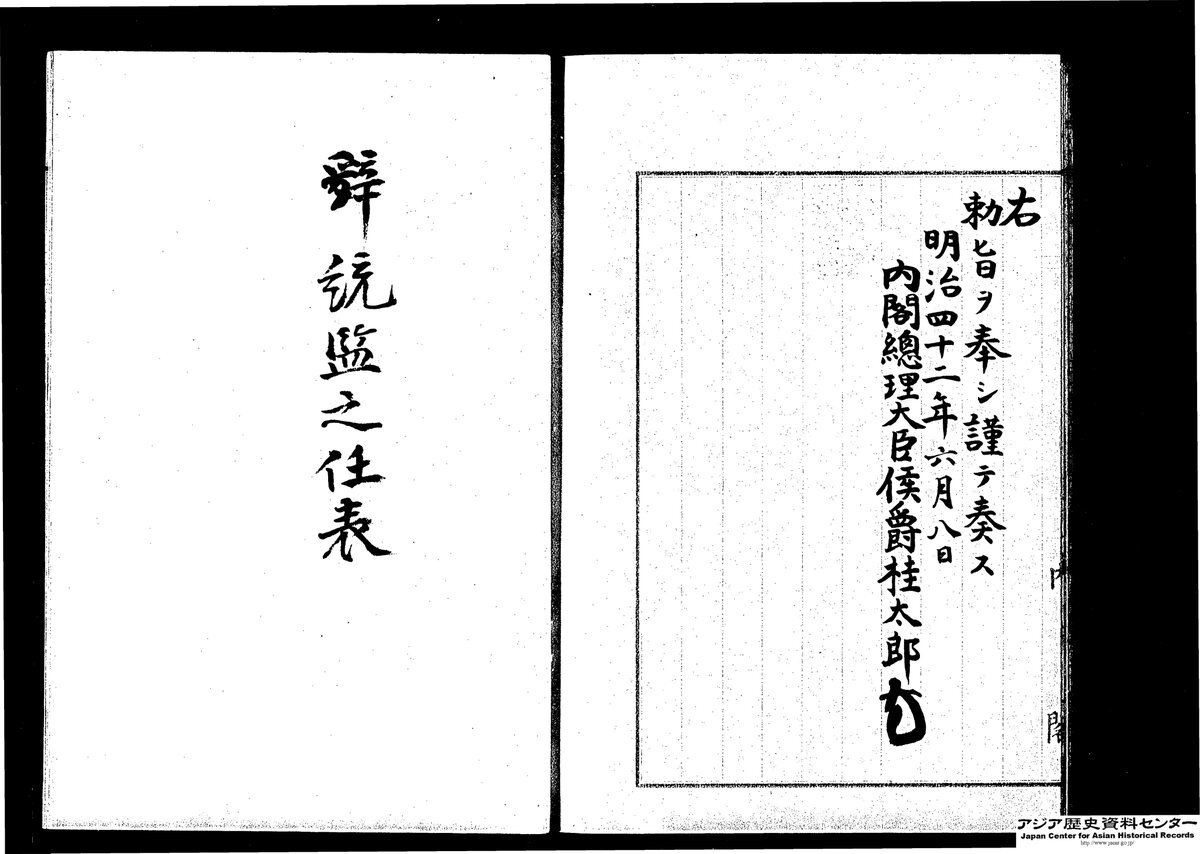 右
勅旨ヲ奉シ謹テ奏ス
明治四十二年六月八日
内閣總理大臣侯爵桂太郎
内閣
辭統監之任表
アジア歴史資料センター
Japan Center for Asian Historical Records
http://www.jacar.go.jp/